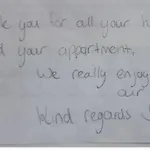 you for all your
your appartment,
We really enjoy
our
Kind regards